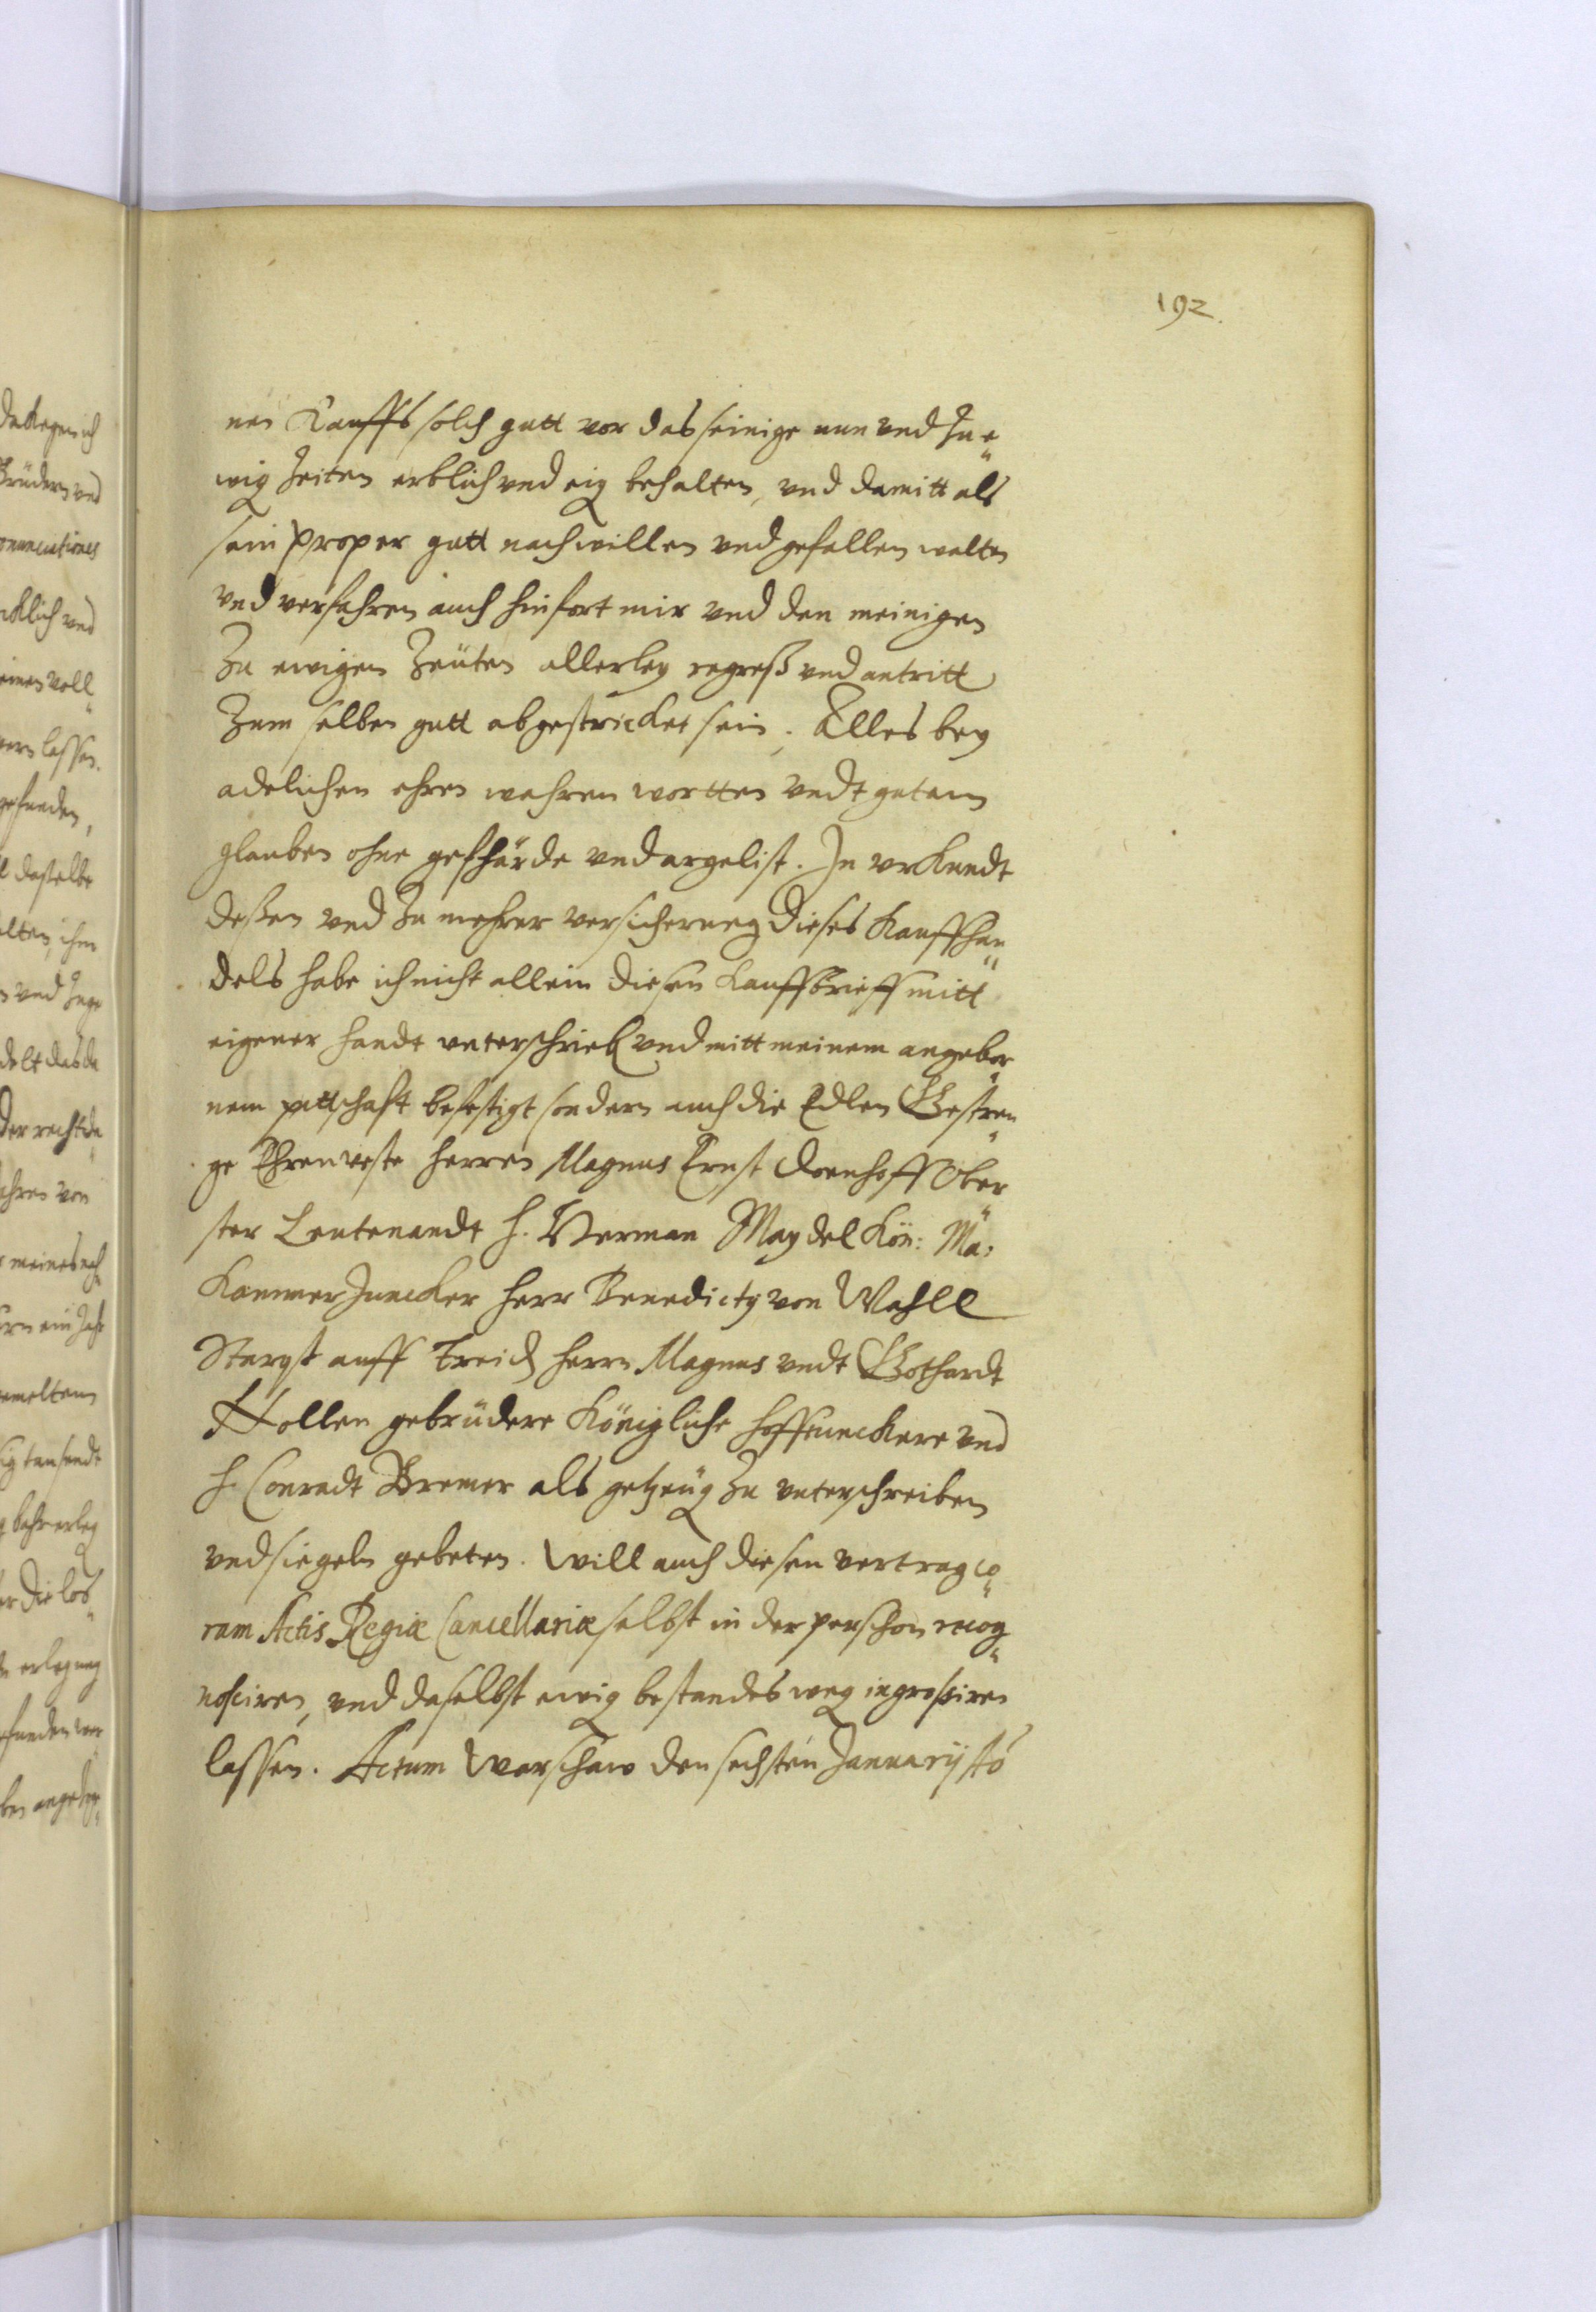 192.
nen Kauffs solch gutt vor das seinige nun vnd Zu e„
wig Zeiten erblich vnd eig behalten, vnd damitt als
sein proper gutt nach willen vnd gefallen walten
vnd verfahren auch hinfort mir vnd den meinigen
Zu ewigen Zeüten allerley regreß vnd antritt
Zum selben gutt abgestricket sein. Alles bey
adelichen ehren wahren wortten vndt gutem
glauben ohne gefhärde vnd argelist. In vrkundt
deßen vnd Zu mehrer versicherung dieses Kauffhan„
dels habe ich nicht allein diesen Kauffbrieff mitt
eigener handt vnterschrieb vnd mitt meinem angebor„
nem pittschaft befestigt sondern auch die Edlen Gestren„
ge Ehrenveste herren Magnus Ernst Doenhoff Ober„
ster Leutenandt H. Herman Maydel Kön: Ma:
Kammer Juncker Herr Benedicty von Wahll
Starost auff Treid Herrn Magnus vndt Gothardt
Nollen gebrüdere Königliche Hoffiunckere vnd
H. Conradt Bremer als getzeüg Zu vnterschreiben
vnd siegeln gebeten. Will auch diesen vertrag co„
ram Actis Regiæ Cancellariæ selbst in der perschon recog„
nosciren, vnd daselbst ewig bestandes weg ingrossiren
lassen. Actum Warschaw den sechsten Januarij Ao
dakegen ich
Brüdern vnd
vnd
eines voll„
lassen.
gefunden,
daselbe
ihm
vnd
das
der recht
von
meines
ein Jahr
tausendt
die los„
erlegung